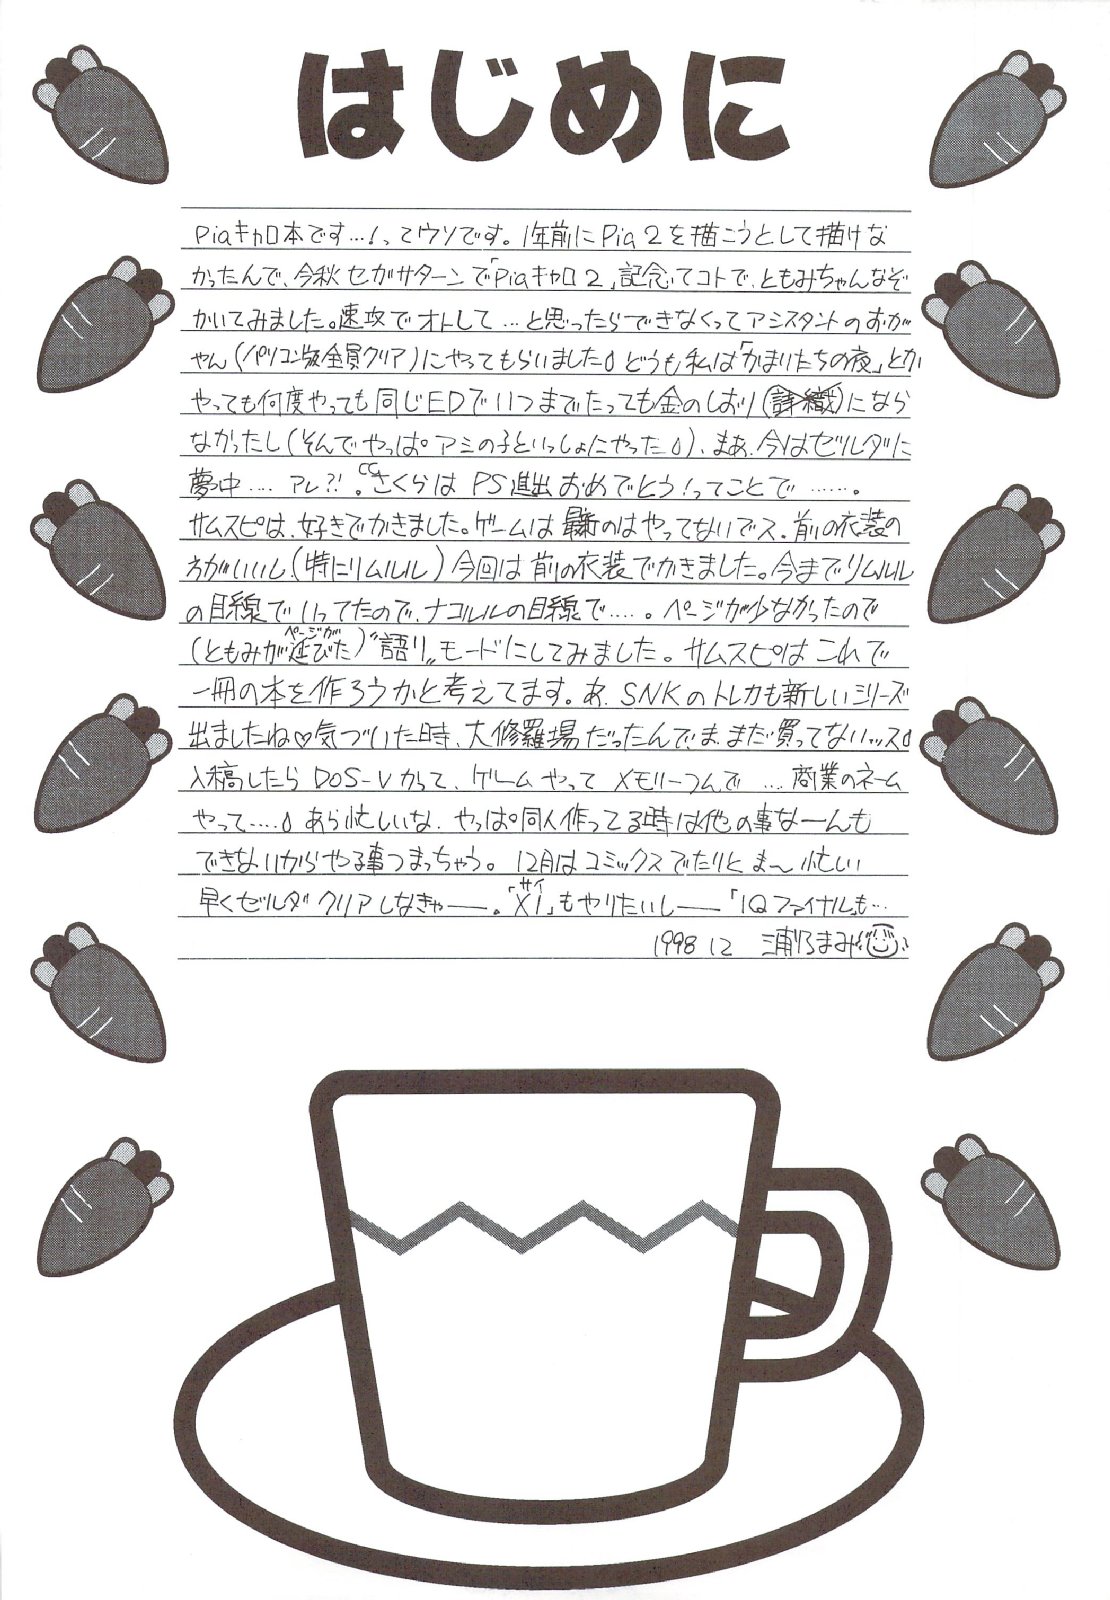 はじめに
Piaキャロ本です…!ってウソです。1年前にPia2を描こうとして描けな
かったんで、今秋セガサターンで「Piaキャロ2」記念てコトで、ともみちゃんなぞ
かいてみました。速攻でオトして…と思ったらできなくってアシスタントのおが
やん(パソコン版全員クリア)にやってもらいました。どうも私は「かまいたちの夜」とか
やっても何度やっても同じEDでいつまでたっても金のしおり()になら
なかったし(そんでやっぱ アミの子といっしょにやった)、まぁ、今はゼルダに
夢中…. アレ?!。CCさくらは PS進出おめでとう!ってことで……。
サムスピは、好きでかきました。ゲームは最新のはやってないでス。前の衣装の
方がいいし(特にリムルル)今回は前の衣装でかきました。今までリムルル
の目線でいってたので、ナコルルの目線で…..。ページが少なかったので
(ともみがページが延びた)"語り"モードにしてみました。サムスピはこれで
一冊の本を作ろうかと考えてます。あ、SNKのトレカも新しいシリーズ
出ましたね♡気づいた時、大修羅場だったんで、ま、まだ買ってないッス
入稿したらDOS-Vかって、ゲームやって メモリーつんで …. 商業のネーム
やって….. あら忙しいな、やっぱ同人作ってる時は他の事なーんも
できないからやる事つまっちゃう。12月はコミックスでたりとま〜忙しい
早くゼルダクリアしなきゃー。「XI(サイ)」もやりたいしー「IQファイナル」も…
1998 12 浦乃まみ